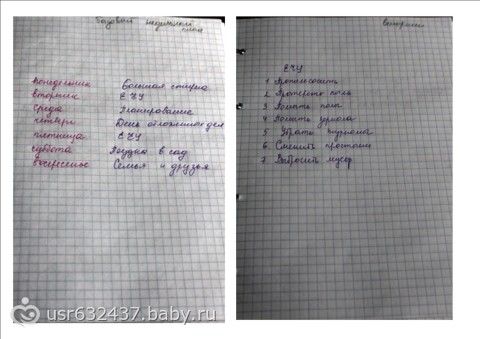 Базовый недельный
план
понедельник Большая стирка
вторник ЕЧУ
среда Планирование
четверг День отложенных дел
пятница ЕЧУ
суббота Поездка в сад
воскресенье Семья и друзья
вторник
ЕЧУ
1 Пропылесосить
2 Протереть пыль
3 Помыть полы
4 Помыть зеркала
5 Убрать журналы
6 Сменить простыни
7 Выбросить мусор
usr632437.baby.ru